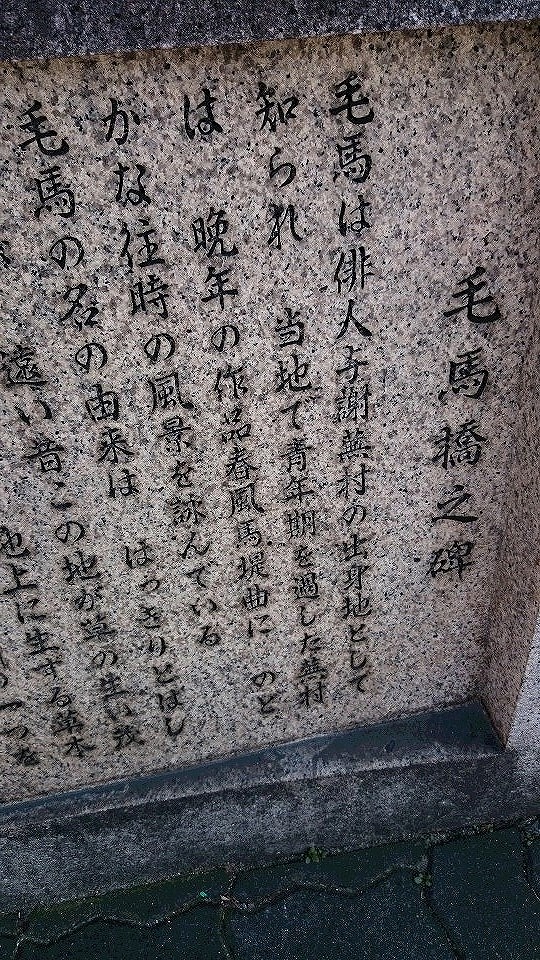 毛馬橋之碑
毛馬は俳人与謝蕪村の出身地として
知られ 当地で青年期を過した蕪村
は 晩年の作品春風馬堤曲に のど
かな往時の風景を詠んでいる
毛馬の名の由来は はっきりとはし
遠い昔この地が草の生い茂
地上に生する草木
一つを